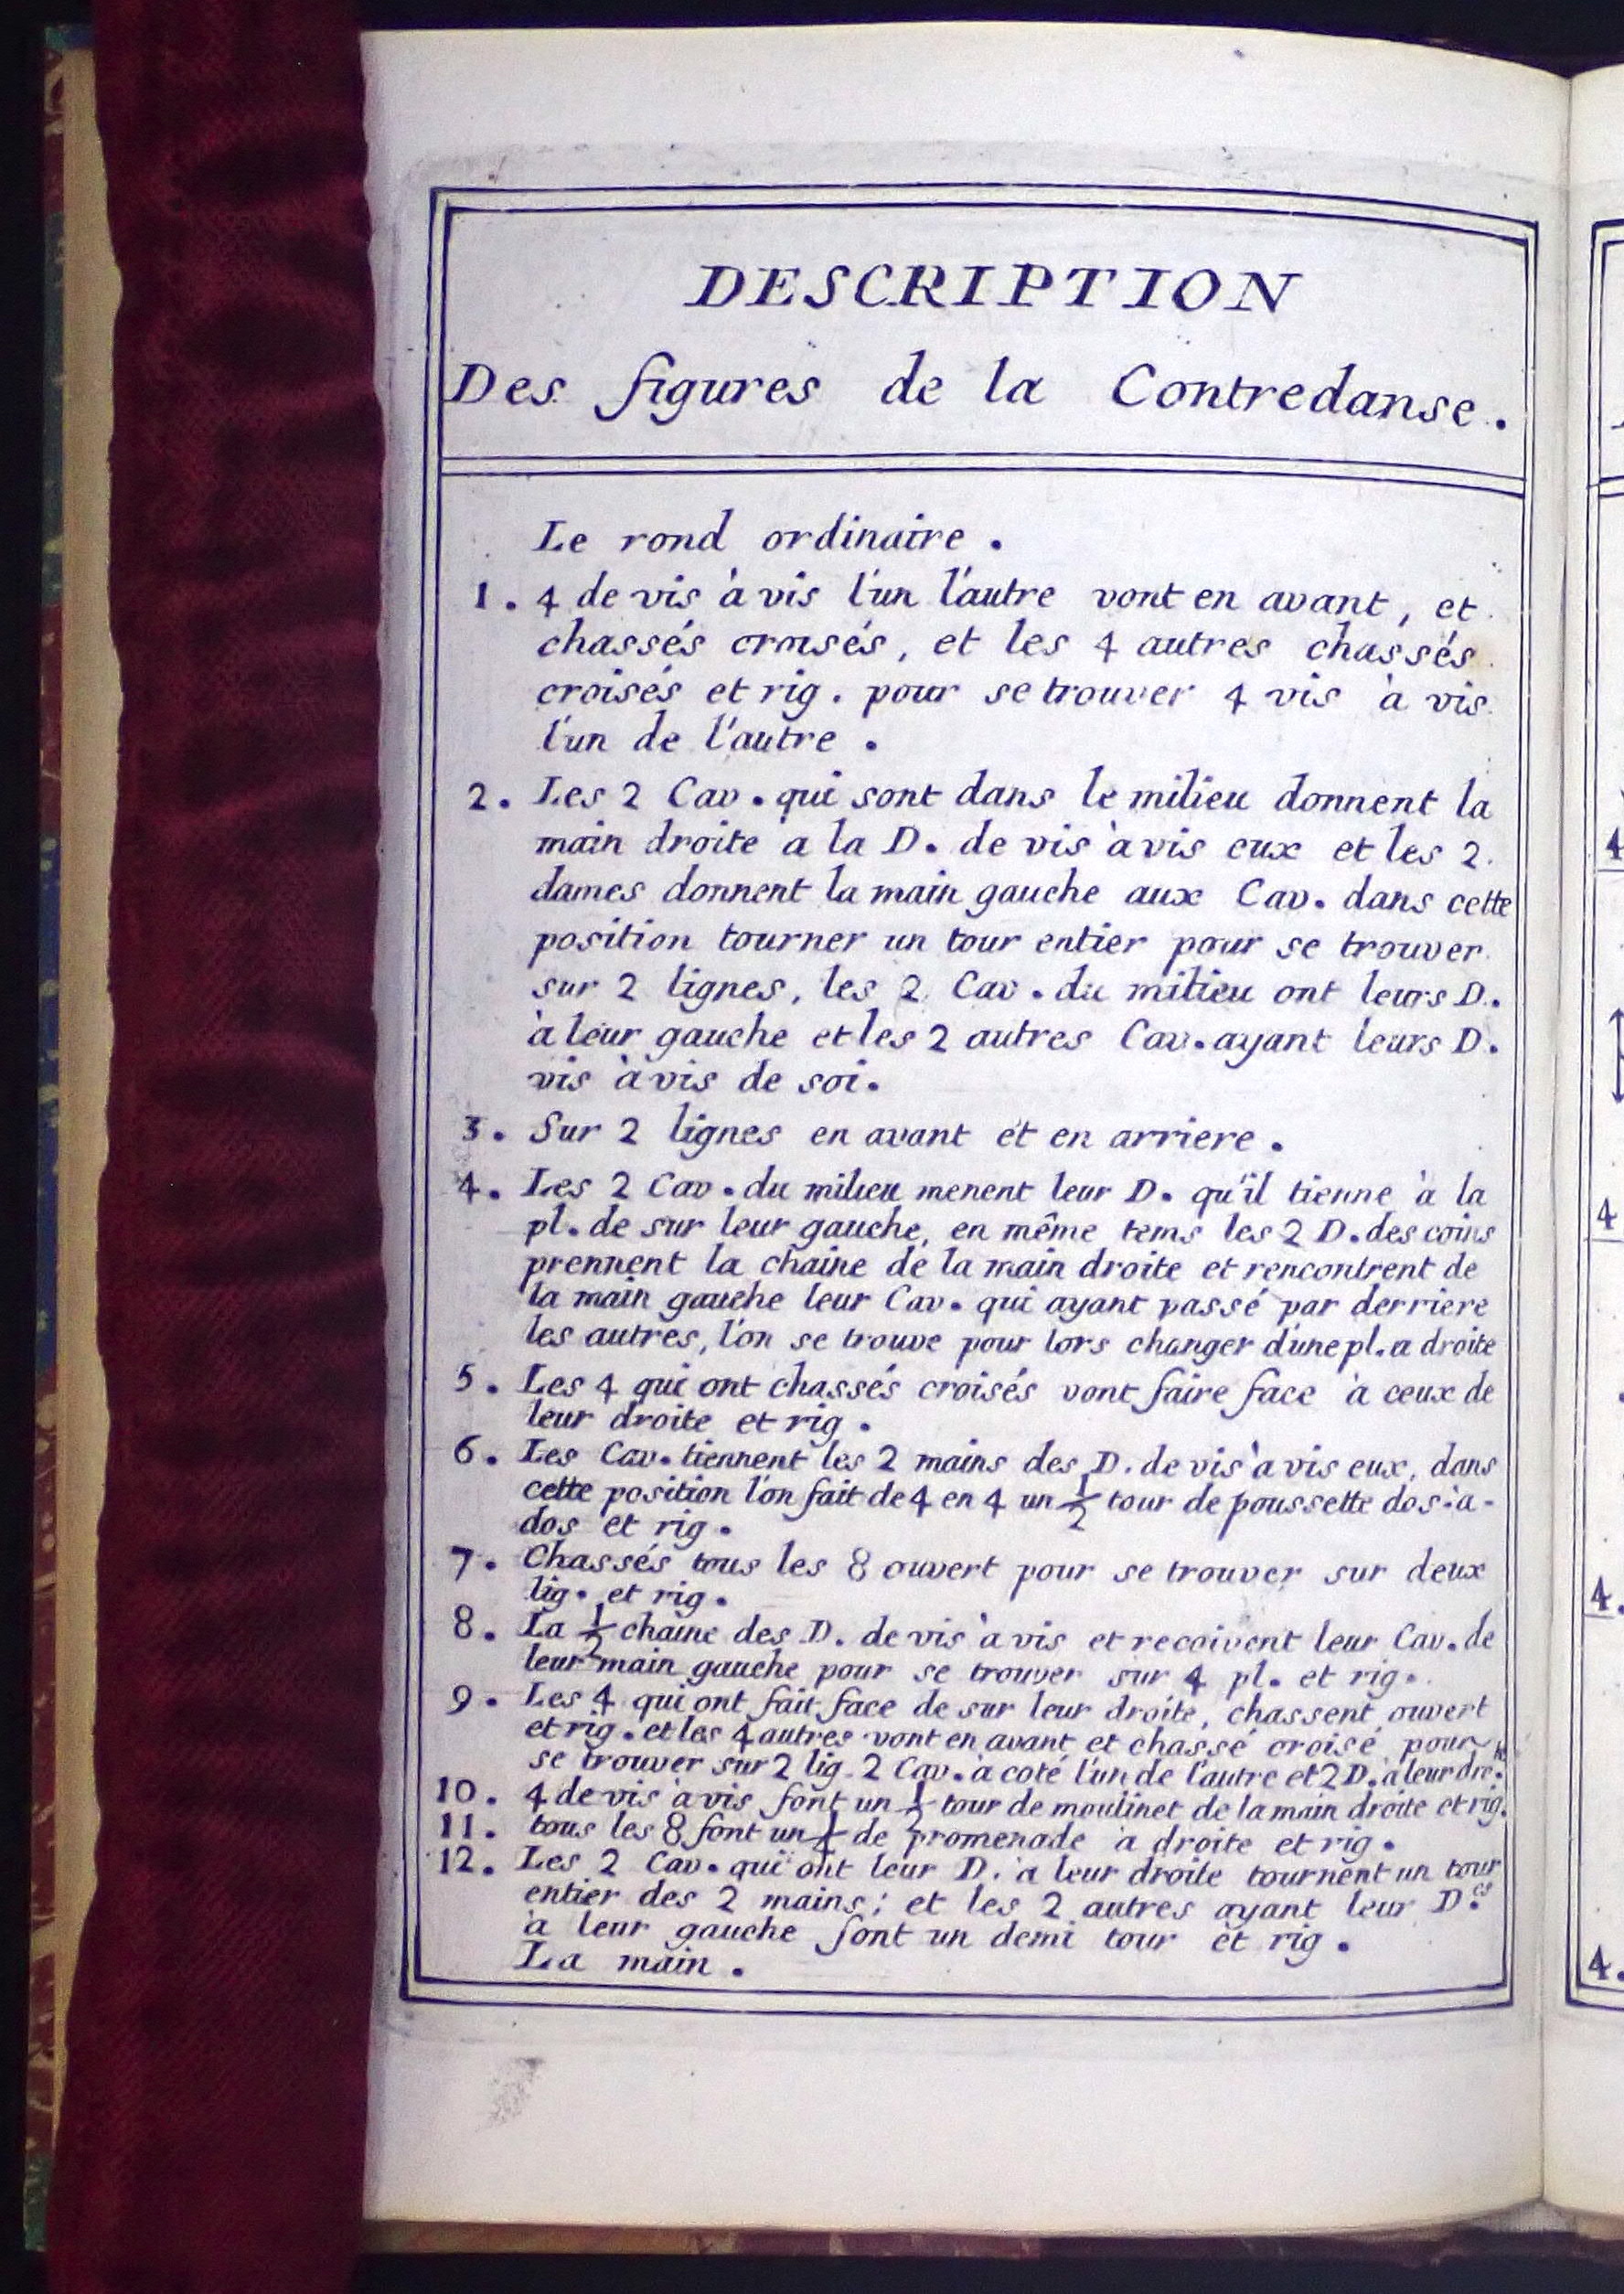 DESCRIPTION
Des figures de la Contredanse.
Le rond ordinaire.
1. 4 de vis à vis l'un l'autre vont en avant, et
chassés croisés, et les 4 autres chassés
croisés et rig. pour se trouver 4 vis à vis
l'un de l'autre.
2. Les 2 Cav. qui sont dans le milieu donnent la
main droite à la D. de vis à vis eux et les 2
dames donnent la main gauche aux Cav. dans cette
position tourner un tour entier pour se trouver
sur 2 lignes, les 2 Cav. du milieu ont leurs D.
à leur gauche et les 2 autres Cav. ayant leurs D.
vis à vis de soi.
3. Sur 2 lignes en avant et en arriere.
4. Les 2 Cav. du milieu menent leur D. qu'il tienne à la
pl. de sur leur gauche, en même tems les 2 D. des coins
prennent la chaine de la main droite et rencontrent de
la main gauche leur Cav. qui ayant passé par derriere
les autres, l'on se trouve pour lors changer d'une pl. a droite
5. Les 4 qui ont chassés croisés vont faire face à ceux de
leur droite et rig.
6. Les Cav. tiennent les 2 mains des D. de vis à vis eux, dans
cette position l'on fait de 4 en 4 un 1/2 tour de poussette dos-à-
dos et rig.
7. Chassés tous les 8 ouvert pour se trouver sur deux
lig. et rig.
8. La 1/2 chaine des D. de vis à vis et recoivent leur Cav. de
leur main gauche pour se trouver sur 4 pl. et rig.
9. Les 4 qui ont fait face de sur leur droite, chassent ouvert
et rig. et les 4 autres vont en avant et chassé croisé pour
se trouver sur 2 lig. 2 Cav. à coté l'un de l'autre et 2 D. à leur dre.
10. 4 de vis à vis font un 1/2 tour de moulinet de la main droite et rig.
11. tous les 8 font un 1/4 de promenade à droite et rig.
12. Les 2 Cav. qui ont leur D. à leur droite tournent un tour
entier des 2 mains; et les 2 autres ayant leur D.es
à leur gauche font un demi tour et rig.
La main.
4
4
4.
4.